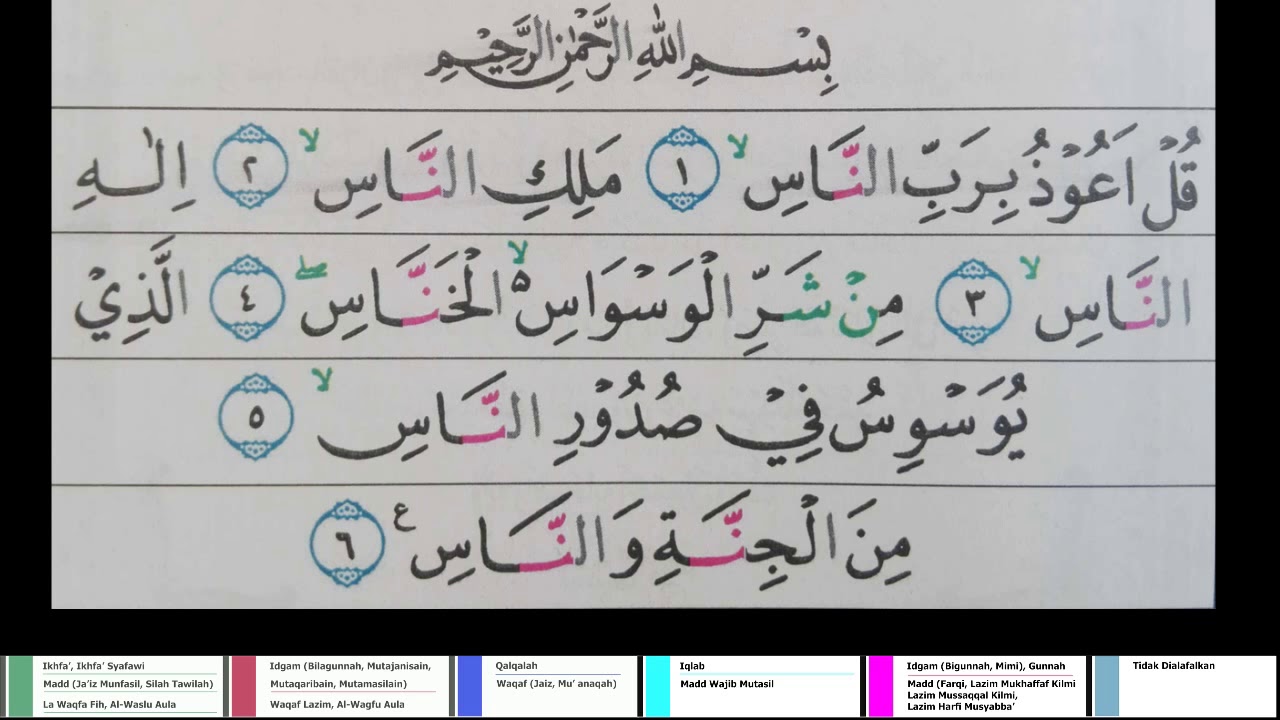 بِسْمِ اللّٰهِ الرَّحْمٰنِ الرَّحِيْمِ
قُلْ اَعُوْذُ بِرَبِّ النَّاسِۙ ١ مَلِكِ النَّاسِۙ ٢ اِلٰهِ
النَّاسِۙ ٣ مِنْ شَرِّ الْوَسْوَاسِ ەۙ الْخَنَّاسِۖ ٤ الَّذِيْ
يُوَسْوِسُ فِيْ صُدُوْرِ النَّاسِۙ ٥
مِنَ الْجِنَّةِ وَالنَّاسِ ع ٦
Ikhfa', Ikhfa' Syafawi
Madd (Ja'iz Munfasil, Silah Tawilah)
La Waqfa Fih, Al-Waslu Aula
Idgam (Bilagunnah, Mutajanisain,
Mutaqaribain, Mutamasilain)
Waqaf Lazim, Al-Wagfu Aula
Qalqalah
Waqaf (Jaiz, Mu' anaqah)
Iqlab
Madd Wajib Mutasil
Idgam (Bigunnah, Mimi), Gunnah
Madd (Farqi, Lazim Mukhaffaf Kilmi
Lazim Mussaqqal Kilmi,
Lazim Harfi Musyabba'
Tidak Dialafalkan